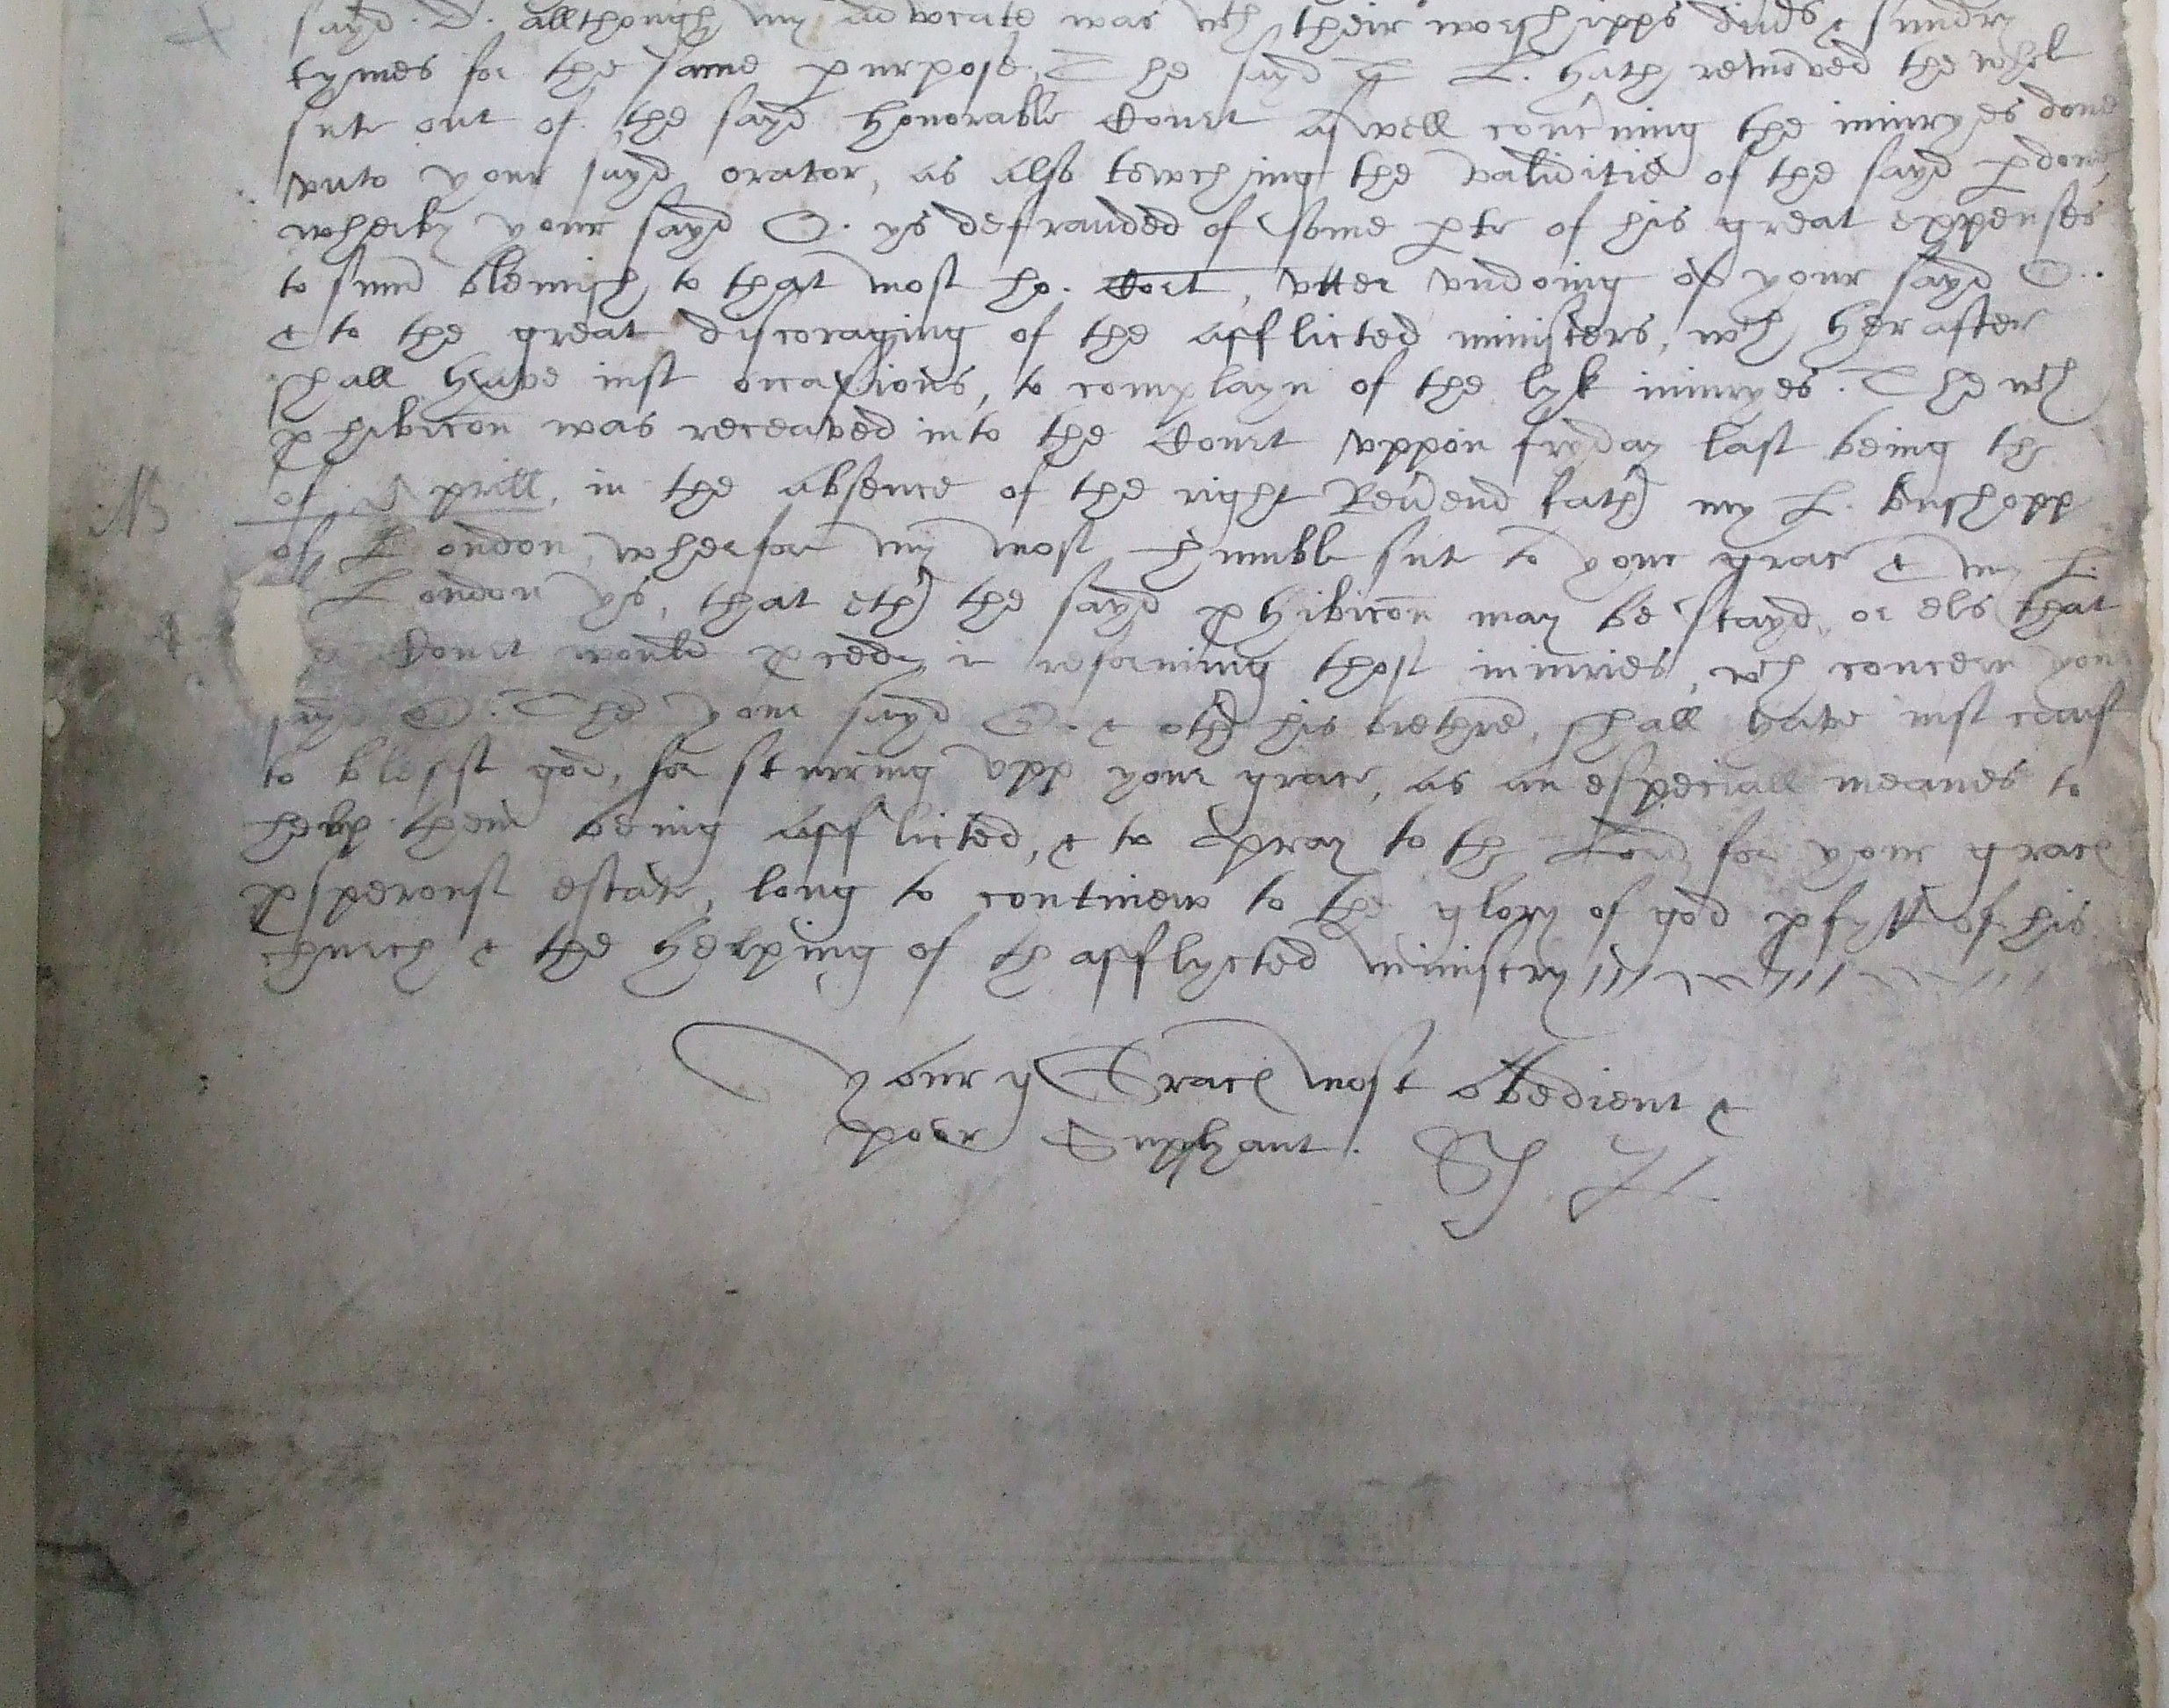 sayd .D. allthough my advocate was wth their worshipps diuds & sundry
tymes for the same purpose. The sayd L. hath removed the whol
sute out of the sayd honorable Court aswell concrning the iniuryes done
vnto your sayd orator, as also towching the validitie of the sayd pdon,
wherby your sayd O. ys defrauded of some pte of his great expenses
to sum blemish to that most ho. Cort, vtter vndoing of your sayd O.
& to the great discoraging of the afflicted ministers, wch herafter
shall have iust occasions, to complayn of the lyk iniuryes. The wch
phibicon was receaved into the Court vppon fryday last being th
of Aprill, in the absence of the right Reuerend fathr my L. bushopp
N
of London, wherfore my most humble sut to your grace & my L.
London ys, that ethr the sayd phibicon may be stayd, or els that
& Court would pced in reforming thos iniuries, wch concern your
sayd O. The your sayd O. & othr his brethren, shall have iust caus
to bless god, for sturring vpp your grace, as an especiall meanes to
help them being afflicted, & to pray to th Lord for your graces
psperous estate, long to continew to the glory of god pfytt of his
church & the helping of th afflycted ministry
your Graces most obedient &
poor Supplyant.